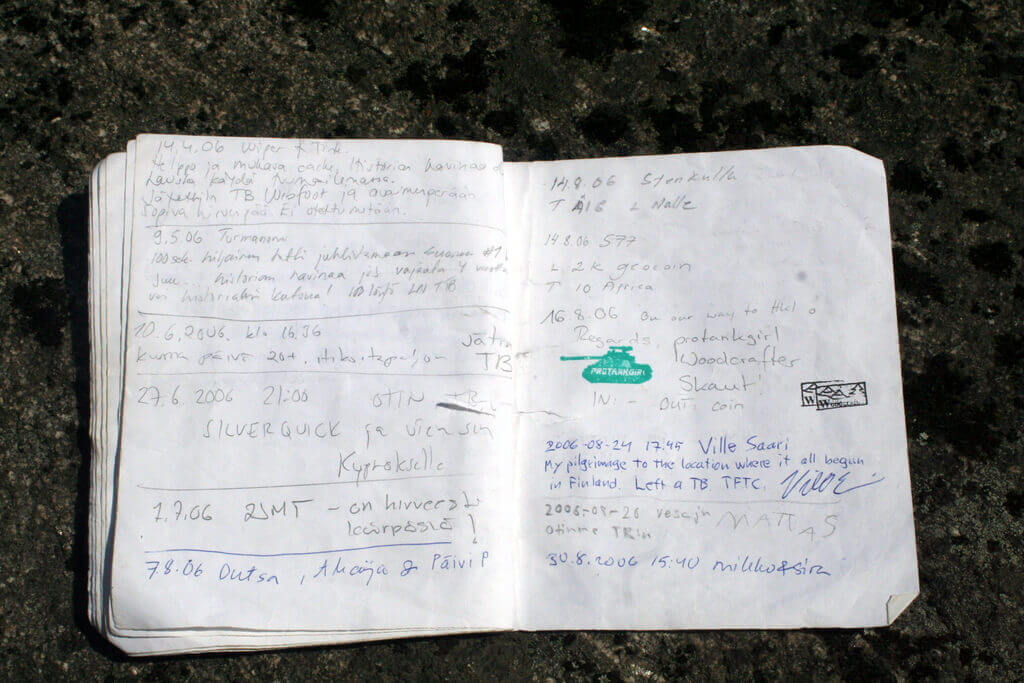 14.4.06 Wiper & Tink.
Helppo ja mukava cache. Historian havinaa
hauska käydä
Jätettiin TB ja avaimenperään
sopiva hirvenpää. Ei otettu mitään.
9.5.06 Turmanona
100sek. hiljainen hetki juhlistamaan Suomen #1
Juu... historian havinaa jos vajaata 4 vuotta
voi historiaksi kutsua! LN TB
10.6.2006. klo 16.36
kuuma päivä 20+.
Jätin
TB
27.6.2006 21:00 OTIN TB
SILVERQUICK ja vien sen
Kyprokselle
1.7.06 2JMT - on hirveesti
kärpäsiä!
7.8.06 Outsa, & Päivi P
14.8.06 Stenkulla
T L Nalle
14.8.06 S77
L 2k geocoin
T 10 Africa
16.8.06 On our way to Hel
Regards, protankgirl
PROTANKGIRL
Woodcrafter
Skaut!
IN: - OUT: coin
2006-08-24 17:45 Ville Saari
My pilgrimage to the location where it all began
in Finland. Left a TB. TFTC. Ville
2006-08-26 MATIAS
Otimme TB:n
30.8.2006 15:40 mikko&siru